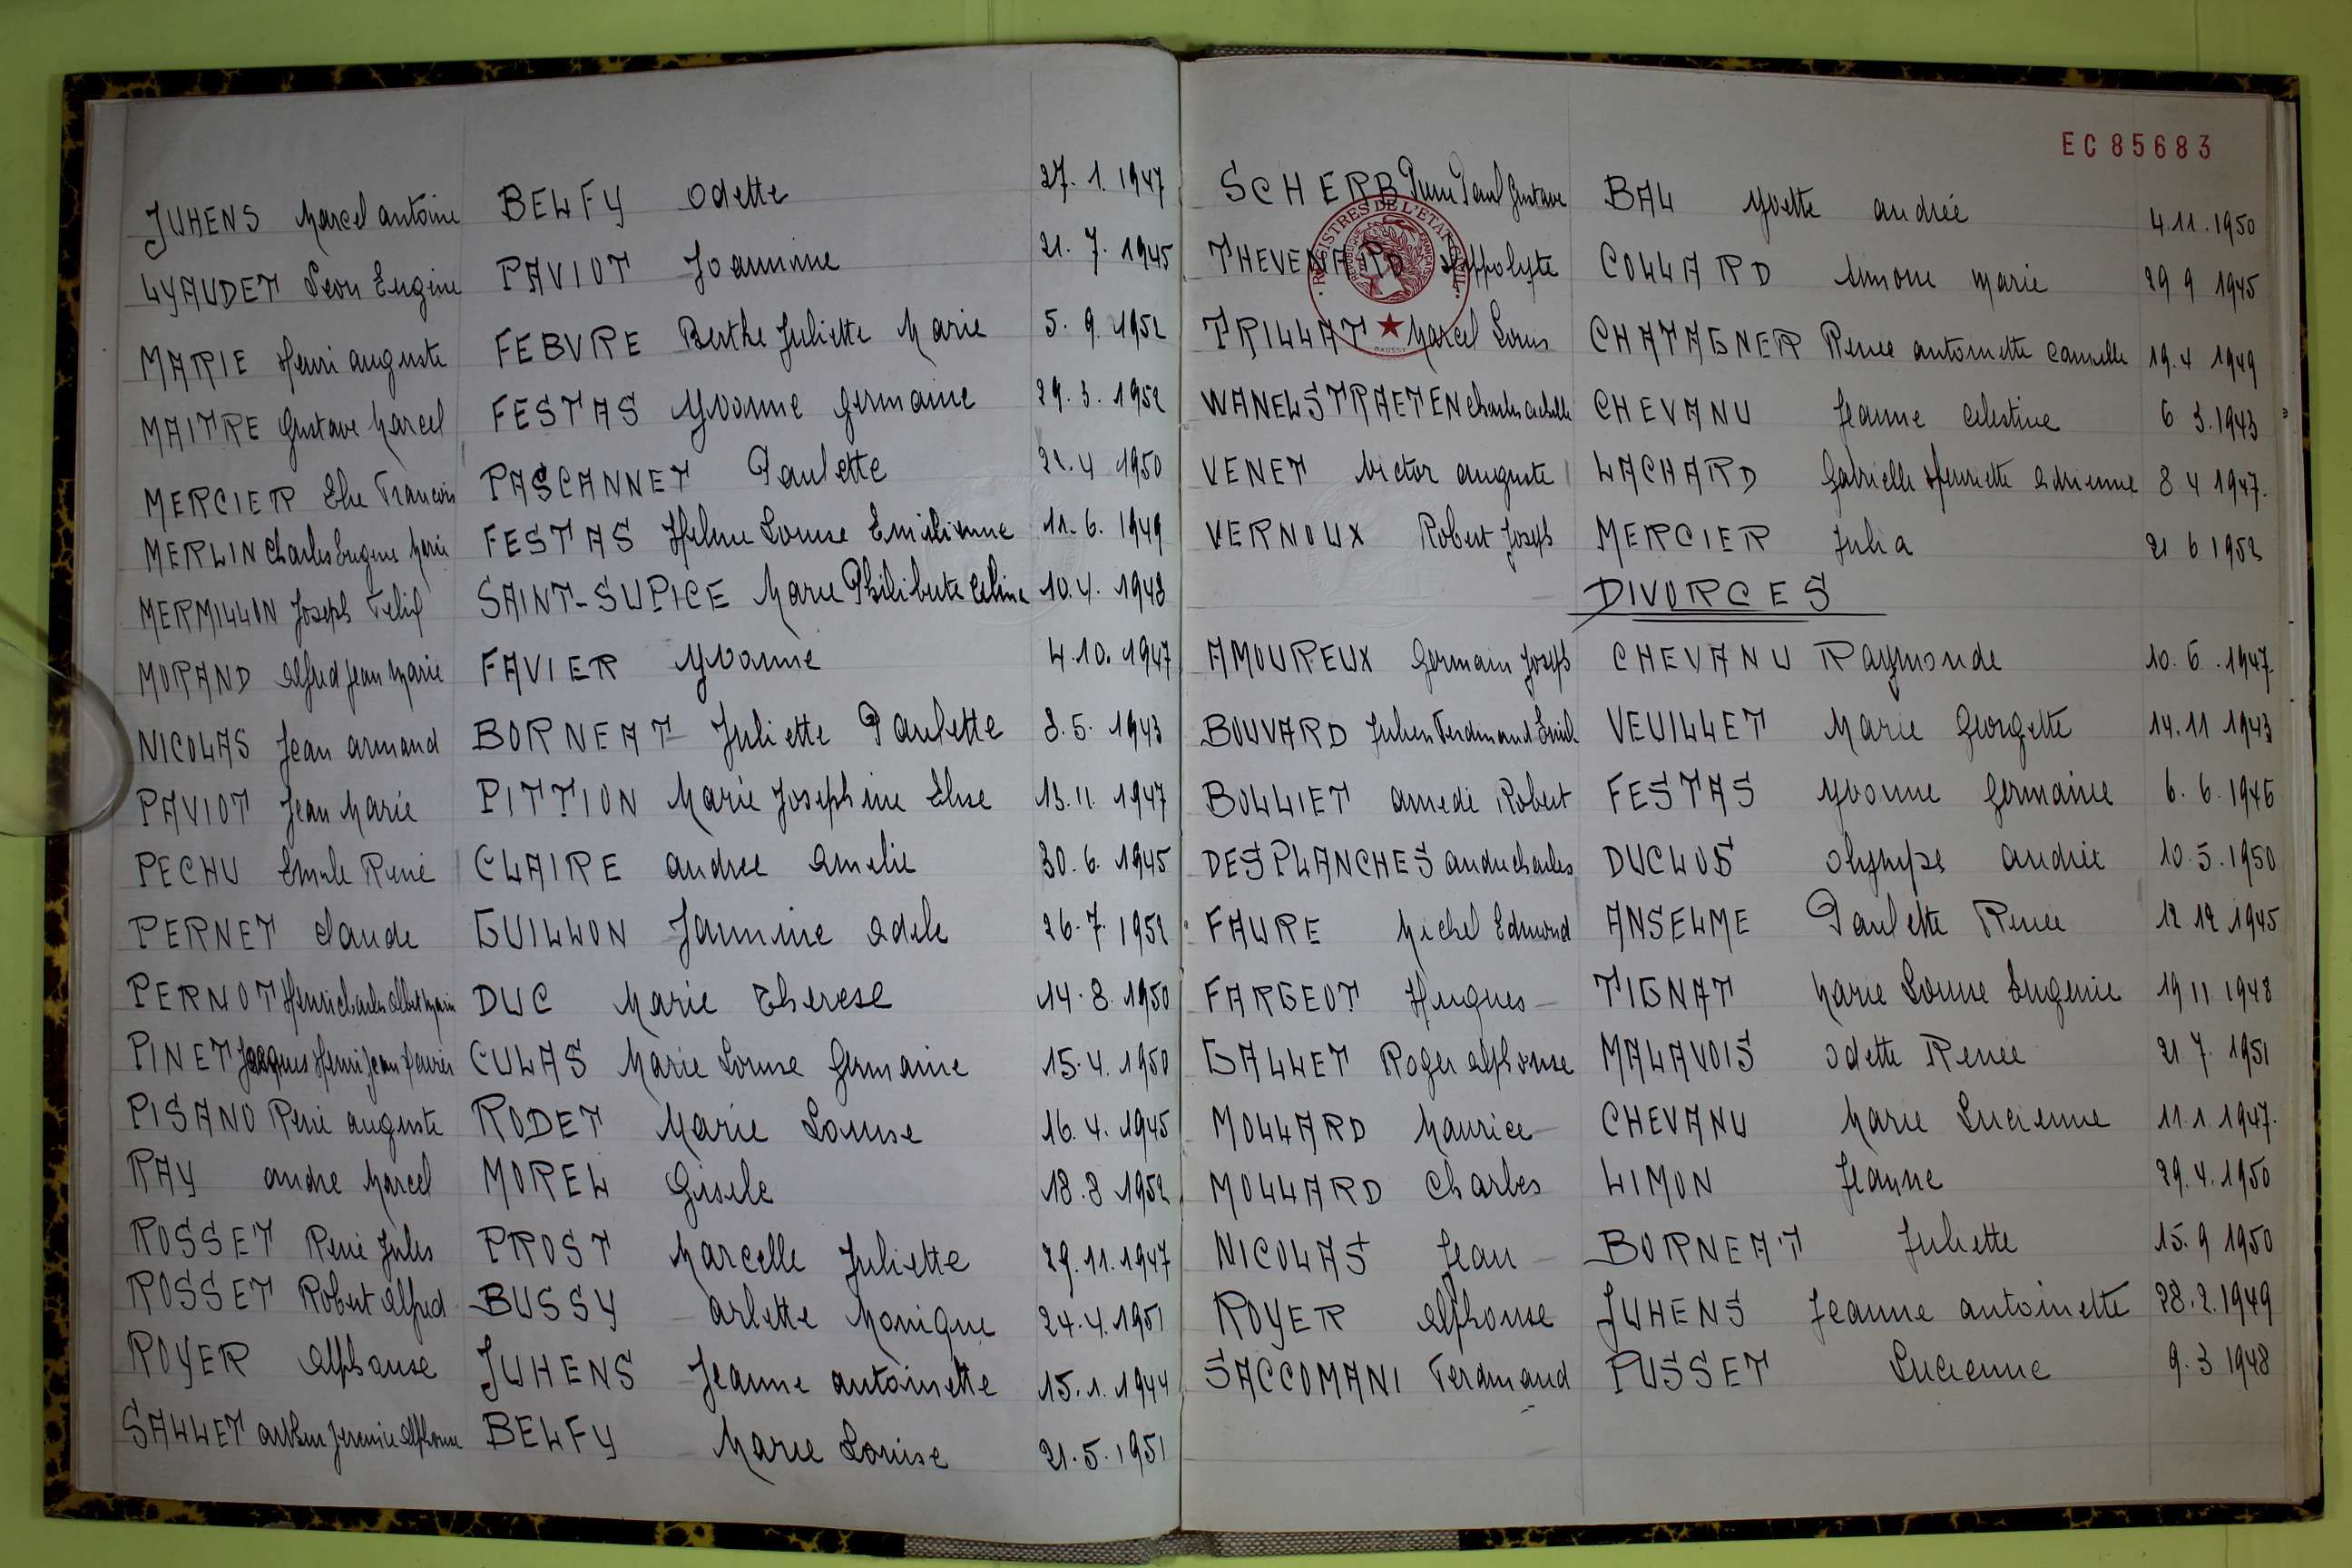 JUHENS Marcel antoine BELFY Odette 27. 1. 1947
LYAUDET Leon Eugène PAVIOT Joannine 21. 7. 1945
MARIE Henri auguste FEBVRE Berthe Juliette Marie 5. 9. 1952
MAITRE Gustave Marcel FESTAS Yvonne Germaine 29. 3. 1952
MERCIER Elie Francois PASCANNET Paulette 22. 4 1950
MERLIN Charles Eugene Marie FESTAS Helene Louise Emilienne 11. 6. 1949
MERMILLON Joseph Felix SAINT-SUPICE Marie Philiberte Celine 10. 4. 1948
MORAND Alfred Jean Marie FAVIER Yvonne 4. 10. 1947
NICOLAS Jean armand BORNEAT Juliette Paulette 8. 5. 1943
PAVIOT Jean Marie PITTION Marie Josephine Elise 13. 11. 1947
PECHU Emile René CLAIRE andree Amelie 30. 6. 1945
PERNET Claude GUILLON Jannine Adele 26. 7. 1952
PERNOT Henri Charles Albert Marie DUC Marie Therese 14. 8. 1950
PINET Jacques Henri Jean CULAS Marie Louise Germaine 15. 4. 1950
PISANO René auguste RODET Marie Louise 16. 4. 1945
RAY andre Marcel MOREL Gisele 18. 8 1952
ROSSET René Jules PROST Marcelle Juliette 29. 11. 1947
ROSSET Robert Alfred BUSSY arlette Monique 24. 4. 1951
ROYER Alphonse JUHENS Jeanne antoinette 15. 1. 1944
SALLET arthur Jeremie Alphonse BELFY Marie Louise 21. 5. 1951
EC 85683
SCHERB Paul Gustave BAL Yvette andrée 4. 11. 1950
REGISTRES DE L'ETAT CIVIL
REPUBLIQUE FRANÇAISE
THEVENARD Hippolyte COLLARD Simone Marie 29 9 1945
TRILLAT Marcel Louis CHATAGNER Renee antoinette Camille 19. 4 1949
WANELSTRAETEN Charles Achille CHEVANU Jeanne Celestine 6 3. 1943
VENET Victor auguste LACHARD Gabrielle Henriette Adrienne 8 4 1947.
VERNOUX Robert Joseph MERCIER Julia 21 6 1952
DIVORCES
AMOUREUX Germain Joseph CHEVANU Raymonde 10. 6. 1947.
BOUVARD Julien Ferdinand Emile VEUILLET Marie Georgette 14. 11 1943
BOLLIET amedé Robert FESTAS Yvonne Germaine 6. 6. 1946
DESPLANCHES andre Charles DUCLOS andrée 10. 5. 1950
FAURE Michel Edmond ANSELME Paulette Renee 12 12 1945
FARGEOT Hugues TIGNAT Marie Louise Eugenie 19 11 1948
GALLET Roger Alphonse MALAVOIS Odette Renée 21 7. 1951
MOLLARD Maurice CHEVANU Marie Lucienne 11. 1. 1947.
MOLLARD Charles LIMON Jeanne 29. 4. 1950
NICOLAS Jean BORNEAT Juliette 15. 9 1950
ROYER Alphonse JUHENS Jeanne antoinette 28. 2. 1949
SACCOMANI Ferdinand PUSSET Lucienne 9. 3 1948